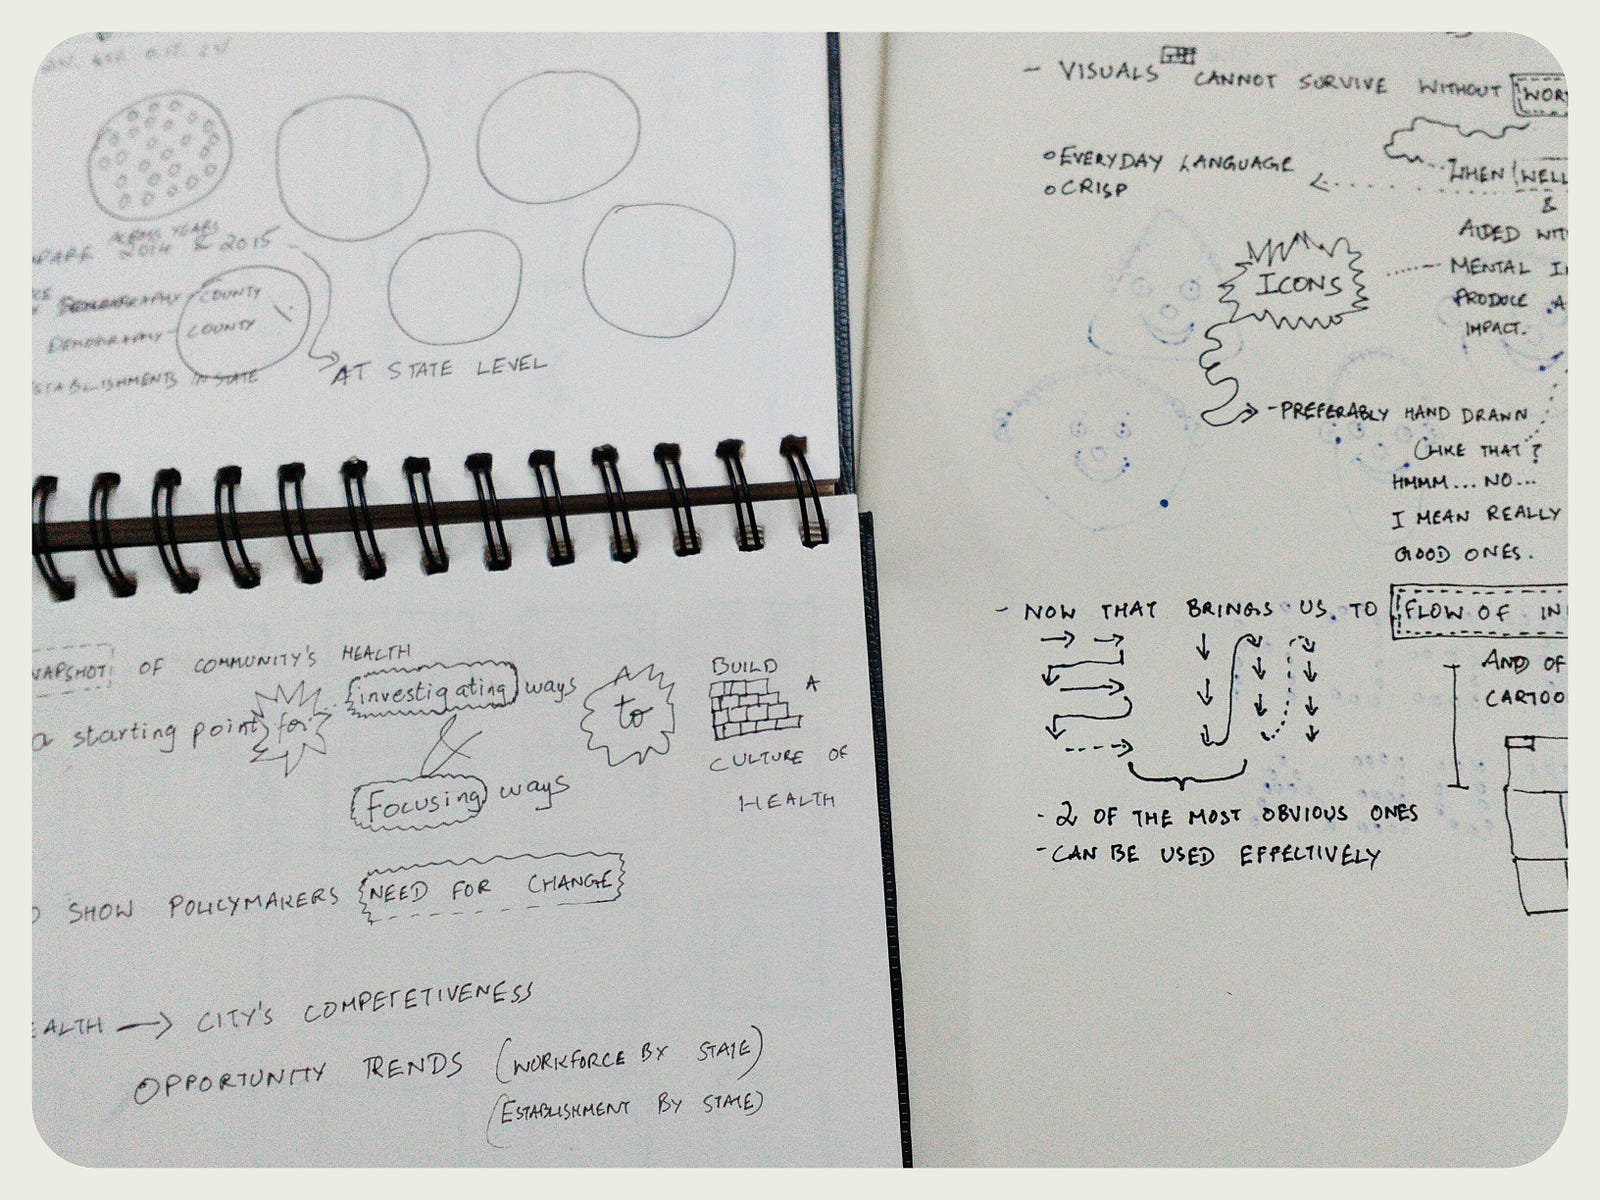 ACROSS YEARS
2014 & 2015
DEMOGRAPHY - COUNTY
DEMOGRAPHY - COUNTY
ESTABLISHMENTS IN STATE
AT STATE LEVEL
SNAPSHOT OF COMMUNITY'S HEALTH
a starting point for investigating ways
&
Focusing ways
to
BUILD
A
CULTURE OF
HEALTH
SHOW POLICYMAKERS NEED FOR CHANGE
EALTH → CITY'S COMPETETIVENESS
OPPORTUNITY TRENDS (WORKFORCE BY STATE)
(ESTABLISHMENT BY STATE)
- VISUALS CANNOT SURVIVE WITHOUT WOR
WHEN WELL
&
○ EVERYDAY LANGUAGE
○ CRISP
AIDED WIT
MENTAL I
PRODUCE A
IMPACT.
ICONS
- PREFERABLY HAND DRAWN
(LIKE THAT?
HMMM... NO...
I MEAN REALLY
GOOD ONES.
- NOW THAT BRINGS US TO FLOW OF IN
AND OF
CARTOO
- 2 OF THE MOST OBVIOUS ONES
- CAN BE USED EFFECTIVELY